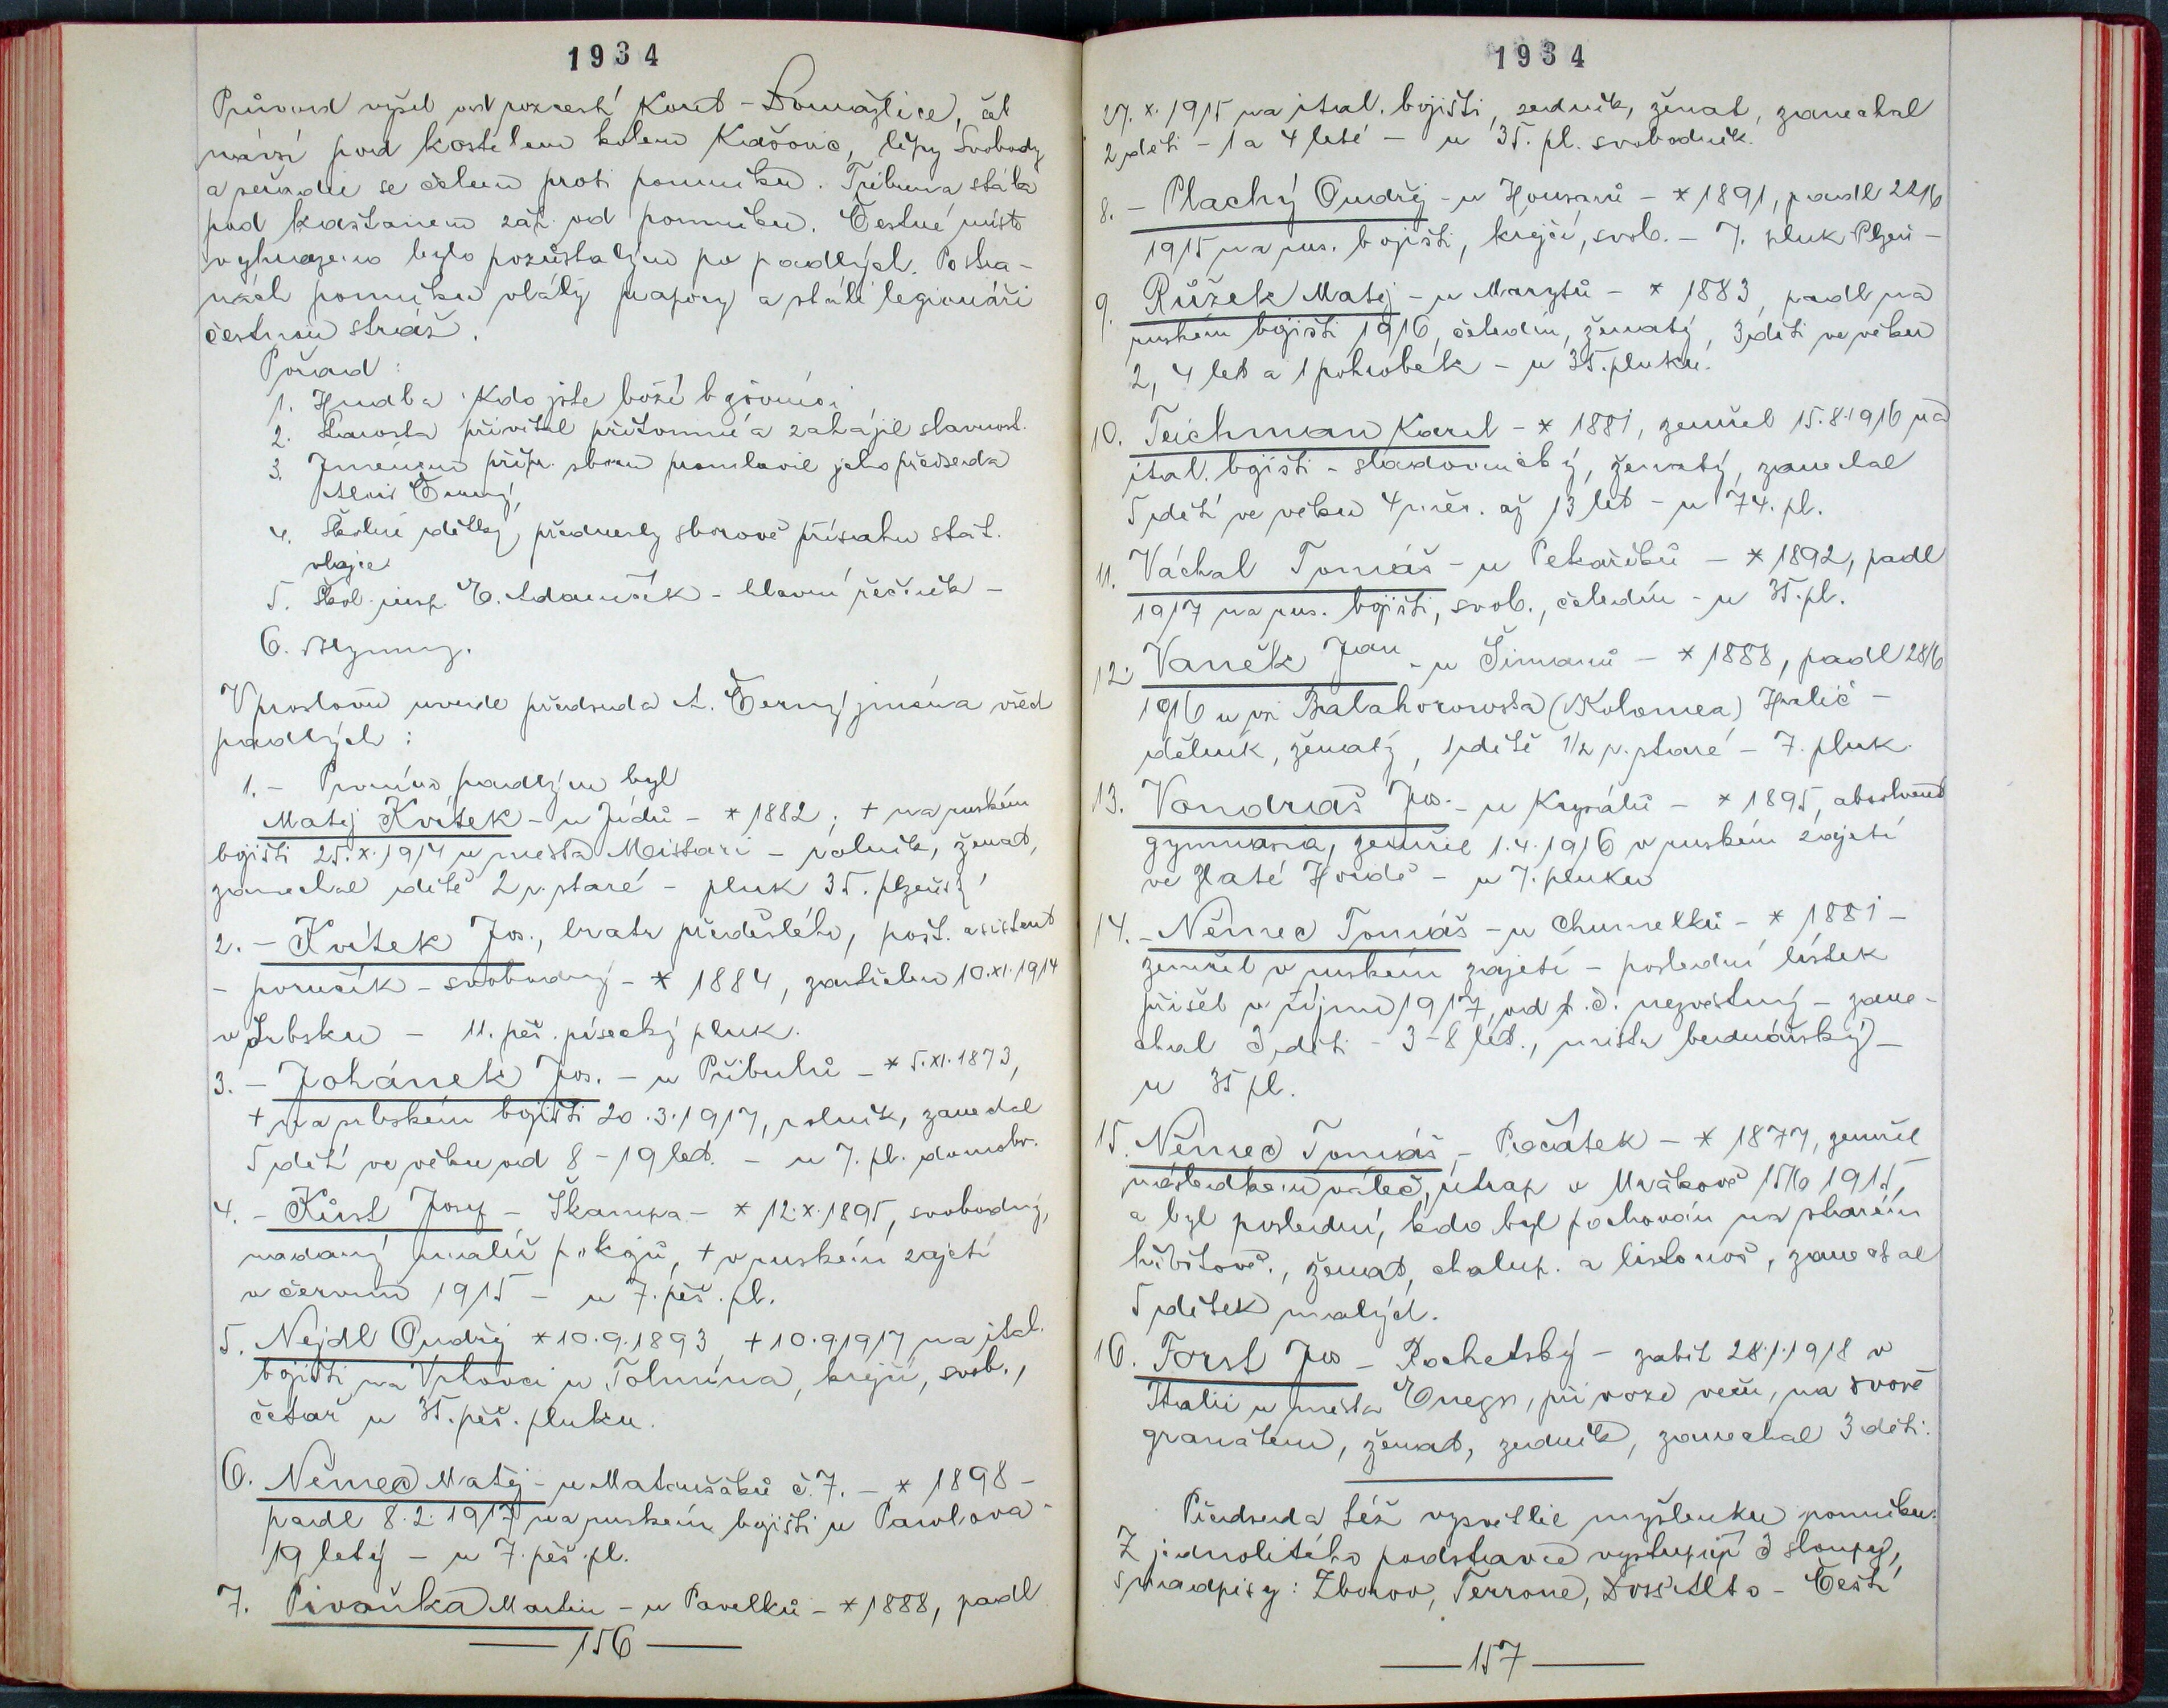 1934
Průvod vyšel od rozcestí Kout - Domažlice, šel
návsí pod kostelem kolem Kačovic, lípy Svobody
a seřadil se čelem proti pomníku. Tribuna stála
pod kaštanem záp. od pomníku. Čestné místo
vyhrazeno bylo pozůstalým po padlých. Po stra-
nách pomníku vlály prapory a stáli legionáři
čestnou stráž.
Pořad:
1. Hudba: Kdo jste boží bojovníci
2. Starosta přivítal přítomné a zahájil slavnost.
3. Jménem příp. sboru promluvil jeho předseda
Alois Černý,
4. Školní dítky přednesly sborově přísahu stát.
vlajce
5. Škol. insp. E. Adamčík - hlavní řečník -
6. Hymny.
V proslovu uvede předseda A. Černý jména všech
padlých:
1. - Prvním padlým byl
Matěj Kvítek - u Jídů - * 1882; + na ruském
bojišti 25. X. 1914 u města Mistari - rolník, ženat,
zanechal dítě 2 r. staré - pluk 35. plzeňský
2. - Kvítek Jos., bratr předešlého, pošt. asistent
- poručík - svobodný - * 1884, zastřelen 10. XI. 1914
v Srbsku - 11. pěš. písecký pluk.
3. - Johánek Jos. - u Přibulů - * 5. XI. 1873,
+ na srbském bojišti 20. 3. 1917, rolník, zanechal
5 dětí ve věku od 8 - 19 let. - u 7. pl. domobr.
4. - Kůst Josef - Škarupa - * 12. X. 1895, svobodný,
nadaný malíř pokojů, + v ruském zajetí
v červnu 1915 - u 7. pěš. pl.
5. Nejdl Ondřej * 10. 9. 1893 + 10. 9 1917 na ital.
bojišti na Vrhovci u Tolmína, krejčí, svob.,
četař u 35. pěš. pluku.
6. Němec Matěj - u Matoušáků č. 7. - * 1898 -
padl 8. 2. 1917 na ruském bojišti u Pavlova -
19 letý - u 7. pěš. pl.
7. Pivoňka Martin - u Pavelků - * 1888, padl
156
1934
27. X. 1915 na ital. bojišti, zedník, ženat, zanechal
2 děti - 1 a 4 leté - u 35. pl. svobodník.
8. - Plachý Ondřej - u Housarů - * 1891, padl 22/6
1915 na rus. bojišti, krejčí, svob. - 7. pluk Plzeň -
9. Růžek Matěj - u Marytů - * 1883, padl na
ruském bojišti 1916, čeledín, ženatý, 3 děti ve věku
2, 4 let a 1 pohrobek - u 35. pluku.
10. Teichman Karel - * 1881, zemřel 15. 8. 1916 na
ital. bojišti - sladovnický, ženatý, zanechal
5 dětí ve věku 4 měs. až 13 let - u 74. pl.
11. Váchal Tomáš - u Pekaříků - * 1892, padl
1917 na rus. bojišti, svob., čeledín - u 35. pl.
12. Vaněk Jan - u Šimanů - * 1888, padl 28/6
1916 u vsi Balahorowska (Kolomea) Halič -
dělník, ženatý, 1 dítě 1/2 r. staré - 7. pluk
13. Vondraš Jos. - u Krysálů - * 1895, absolvent
gymnasia, zemřel 1. 4. 1916 v ruském zajetí
ve Zlaté Hordě - u 7. pluku
14. - Němec Tomáš - u Chumelků - * 1881 -
zemřel v ruském zajetí - poslední lístek
přišel v říjnu 1917, od t. č. nezvěstný - zane-
chal 3 děti - 3 - 8 let., mistr bednářský -
u 35 pl.
15. Němec Tomáš - Počátek - * 1877, zemřel
následkem váleč. útrap v Mrákově 15/6 1915,
a byl poslední, kdo byl pochován na starém
hřbitově., ženat, chalup. a listonoš, zanechal
5 dítek malých.
16. Forst Jos - Rochetský - zabit 28. 1. 1918 v
Italii u města Enego, při voze veču, na dvoře
granátem, ženat, zedník, zanechal 3 děti.
Předseda též vysvětlil myšlenku pomníku:
Z jednolitého podstavce vystupují 3 sloupy,
s nadpisy: Zborov, Terrone, Doss Alto - Čeští
157